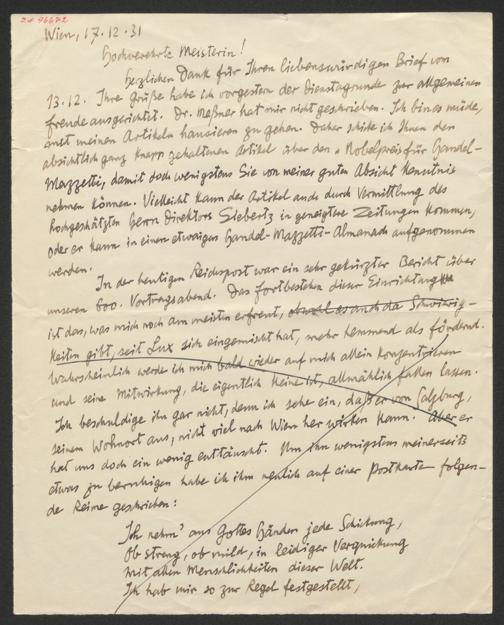 24 96672
Wien, 17.12.31
Hochverehrte Meisterin!
Herzlichen Dank für Ihren liebenswürdigen Brief vom
13.12. Ihre Grüße habe ich vorgestern der Dienstagrunde zur allgemeinen
Freude ausgerichtet. Dr. Meßner hat mir nicht geschrieben. Ich bin es müde,
mit meinen Artikeln hausieren zu gehen. Daher schicke ich Ihnen den
absichtlich ganz knapp gehaltenen Artikel über den „Nobelpreis für Handel-
Mazzetti, damit doch wenigstens Sie von meiner guten Absicht Kenntnis
nehmen können. Vielleicht kann der Artikel auch durch Vermittlung des
hochgeschätzten Herrn Direktors Siebertz in geneigtere Zeitungen kommen,
oder er kann in einen etwaigen Handel-Mazzetti-Almanach aufgenommen
werden.
In der heutigen Reichspost war ein sehr gekürzter Bericht über
unseren 600. Vortragsabend. Das Fortbestehen dieser Einrichtung
ist das, was mich noch am meisten erfreut, obwohl es auch da Schwierig-
keiten gibt, seit Lux sich eingemischt hat, mehr hemmend als fördernd.
Wahrscheinlich werde ich mich bald wieder auf mich allein konzentrieren
und seine Mitwirkung, die eigentlich keine ist, allmählich fallen lassen.
Ich beschuldige ihn gar nicht, denn ich sehe ein, daß er von Salzburg,
seinem Wohnort aus, nicht viel nach Wien her wirken kann. Aber er
hat uns doch ein wenig enttäuscht. Um ihn wenigstens meinerseits
etwas zu beruhigen habe ich ihm neulich auf einer Postkarte folgen-
de Reime geschrieben:
Ich nehm' aus Gottes Händen jede Schickung,
Ob streng, ob mild, in leidiger Verquickung
Mit allen Menschlichkeiten dieser Welt.
Ich hab mir so zur Regel festgestellt,